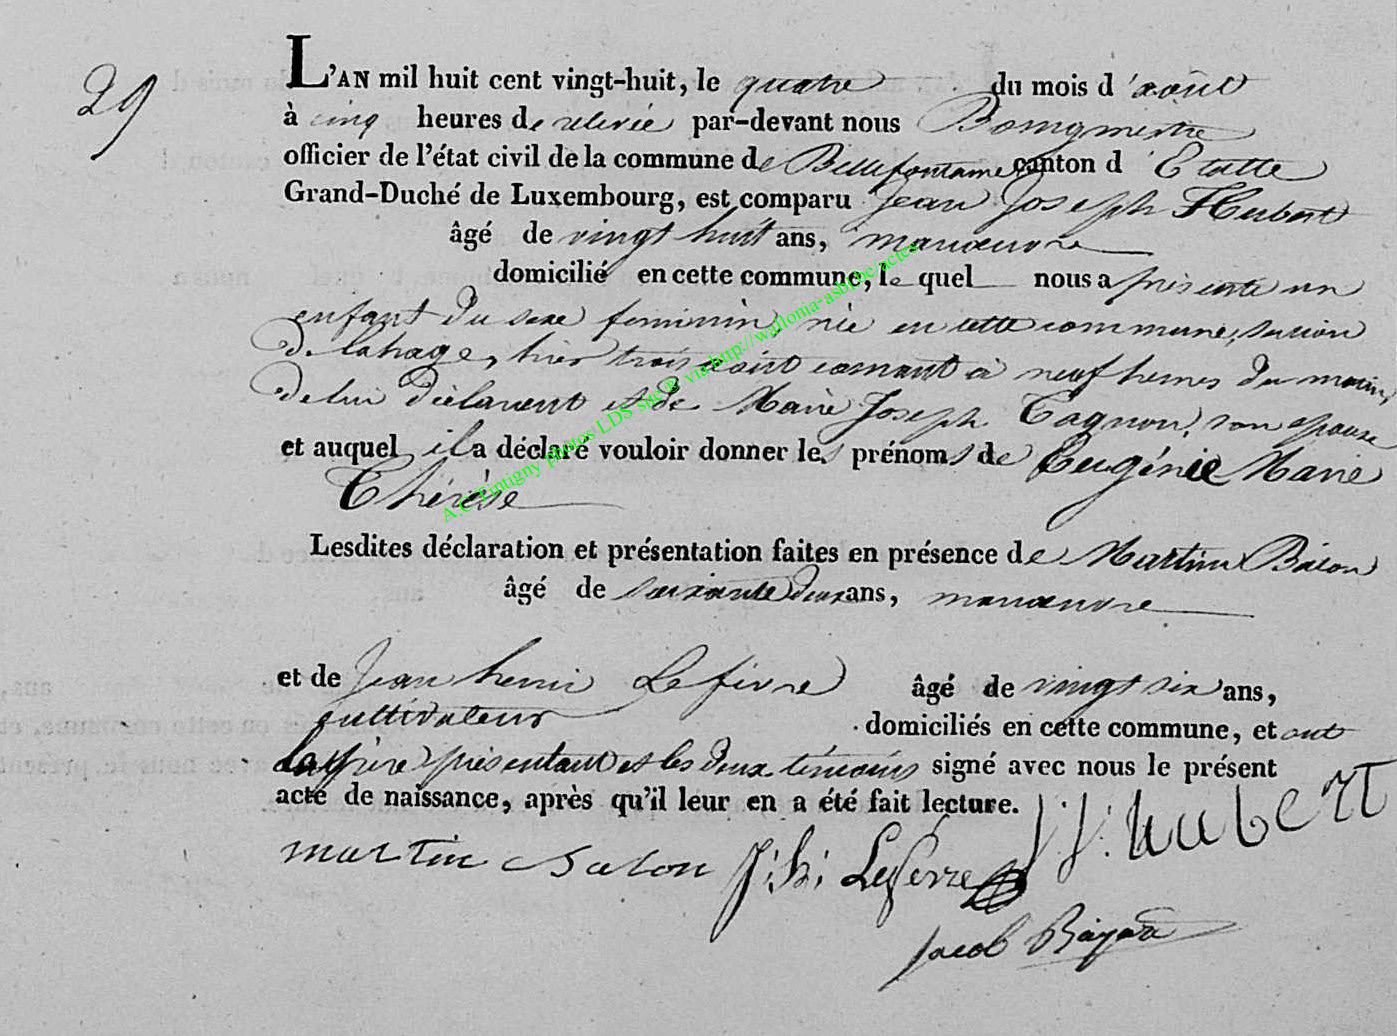 29
L'AN mil huit cent vingt-huit, le quatre du mois d'aout
à cinq heures de relevée par-devant nous Bourgmestre
officier de l'état civil de la commune de Bellefontaine canton d'Etalle
Grand-Duché de Luxembourg, est comparu Jean Joseph Hubert
âgé de vingt huit ans, manœuvre
domicilié en cette commune, le quel nous a présenté un
enfant du sexe féminin, née en cette commune, section
de lahage, hier trois aout courant à neuf heures du matin,
de lui déclarant et de Marie Joseph Gagnon, son épouse
et auquel il a déclaré vouloir donner les prénoms de Eugénie Marie
Thérèse
Lesdites déclaration et présentation faites en présence de Martin Balon
âgé de soixante deux ans, manœuvre
et de Jean henri Lefèvre âgé de vingt six ans,
cultivateur domiciliés en cette commune, et ont
le père présentant et les deux témoins signé avec nous le présent
acte de naissance, après qu'il leur en a été fait lecture.
J. J. hubert
martin Balon J: h: Lefevre
Jacob
A.C. Tintigny photos LDS sur le via http://wallonia-asbl.be/actes